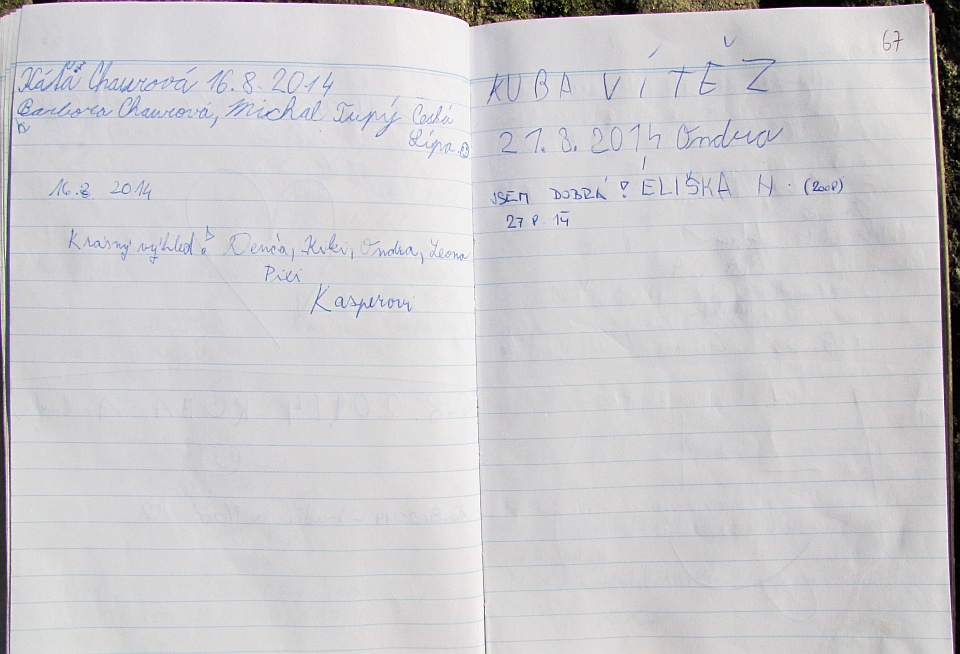 Káťa Chaurová 16.8.2014
Barbora Chaurová, Michal Tupý Česká
Lípa
16.8 2014
Krásný výhled! Denča, Kiki, Ondra, Leona
Pixi
Kasperovi
67
KUBA VÍTĚZ
21.8.2014 Ondra
JSEM DOBRÁ! ELIŠKA H. (2008)
27 8. 14